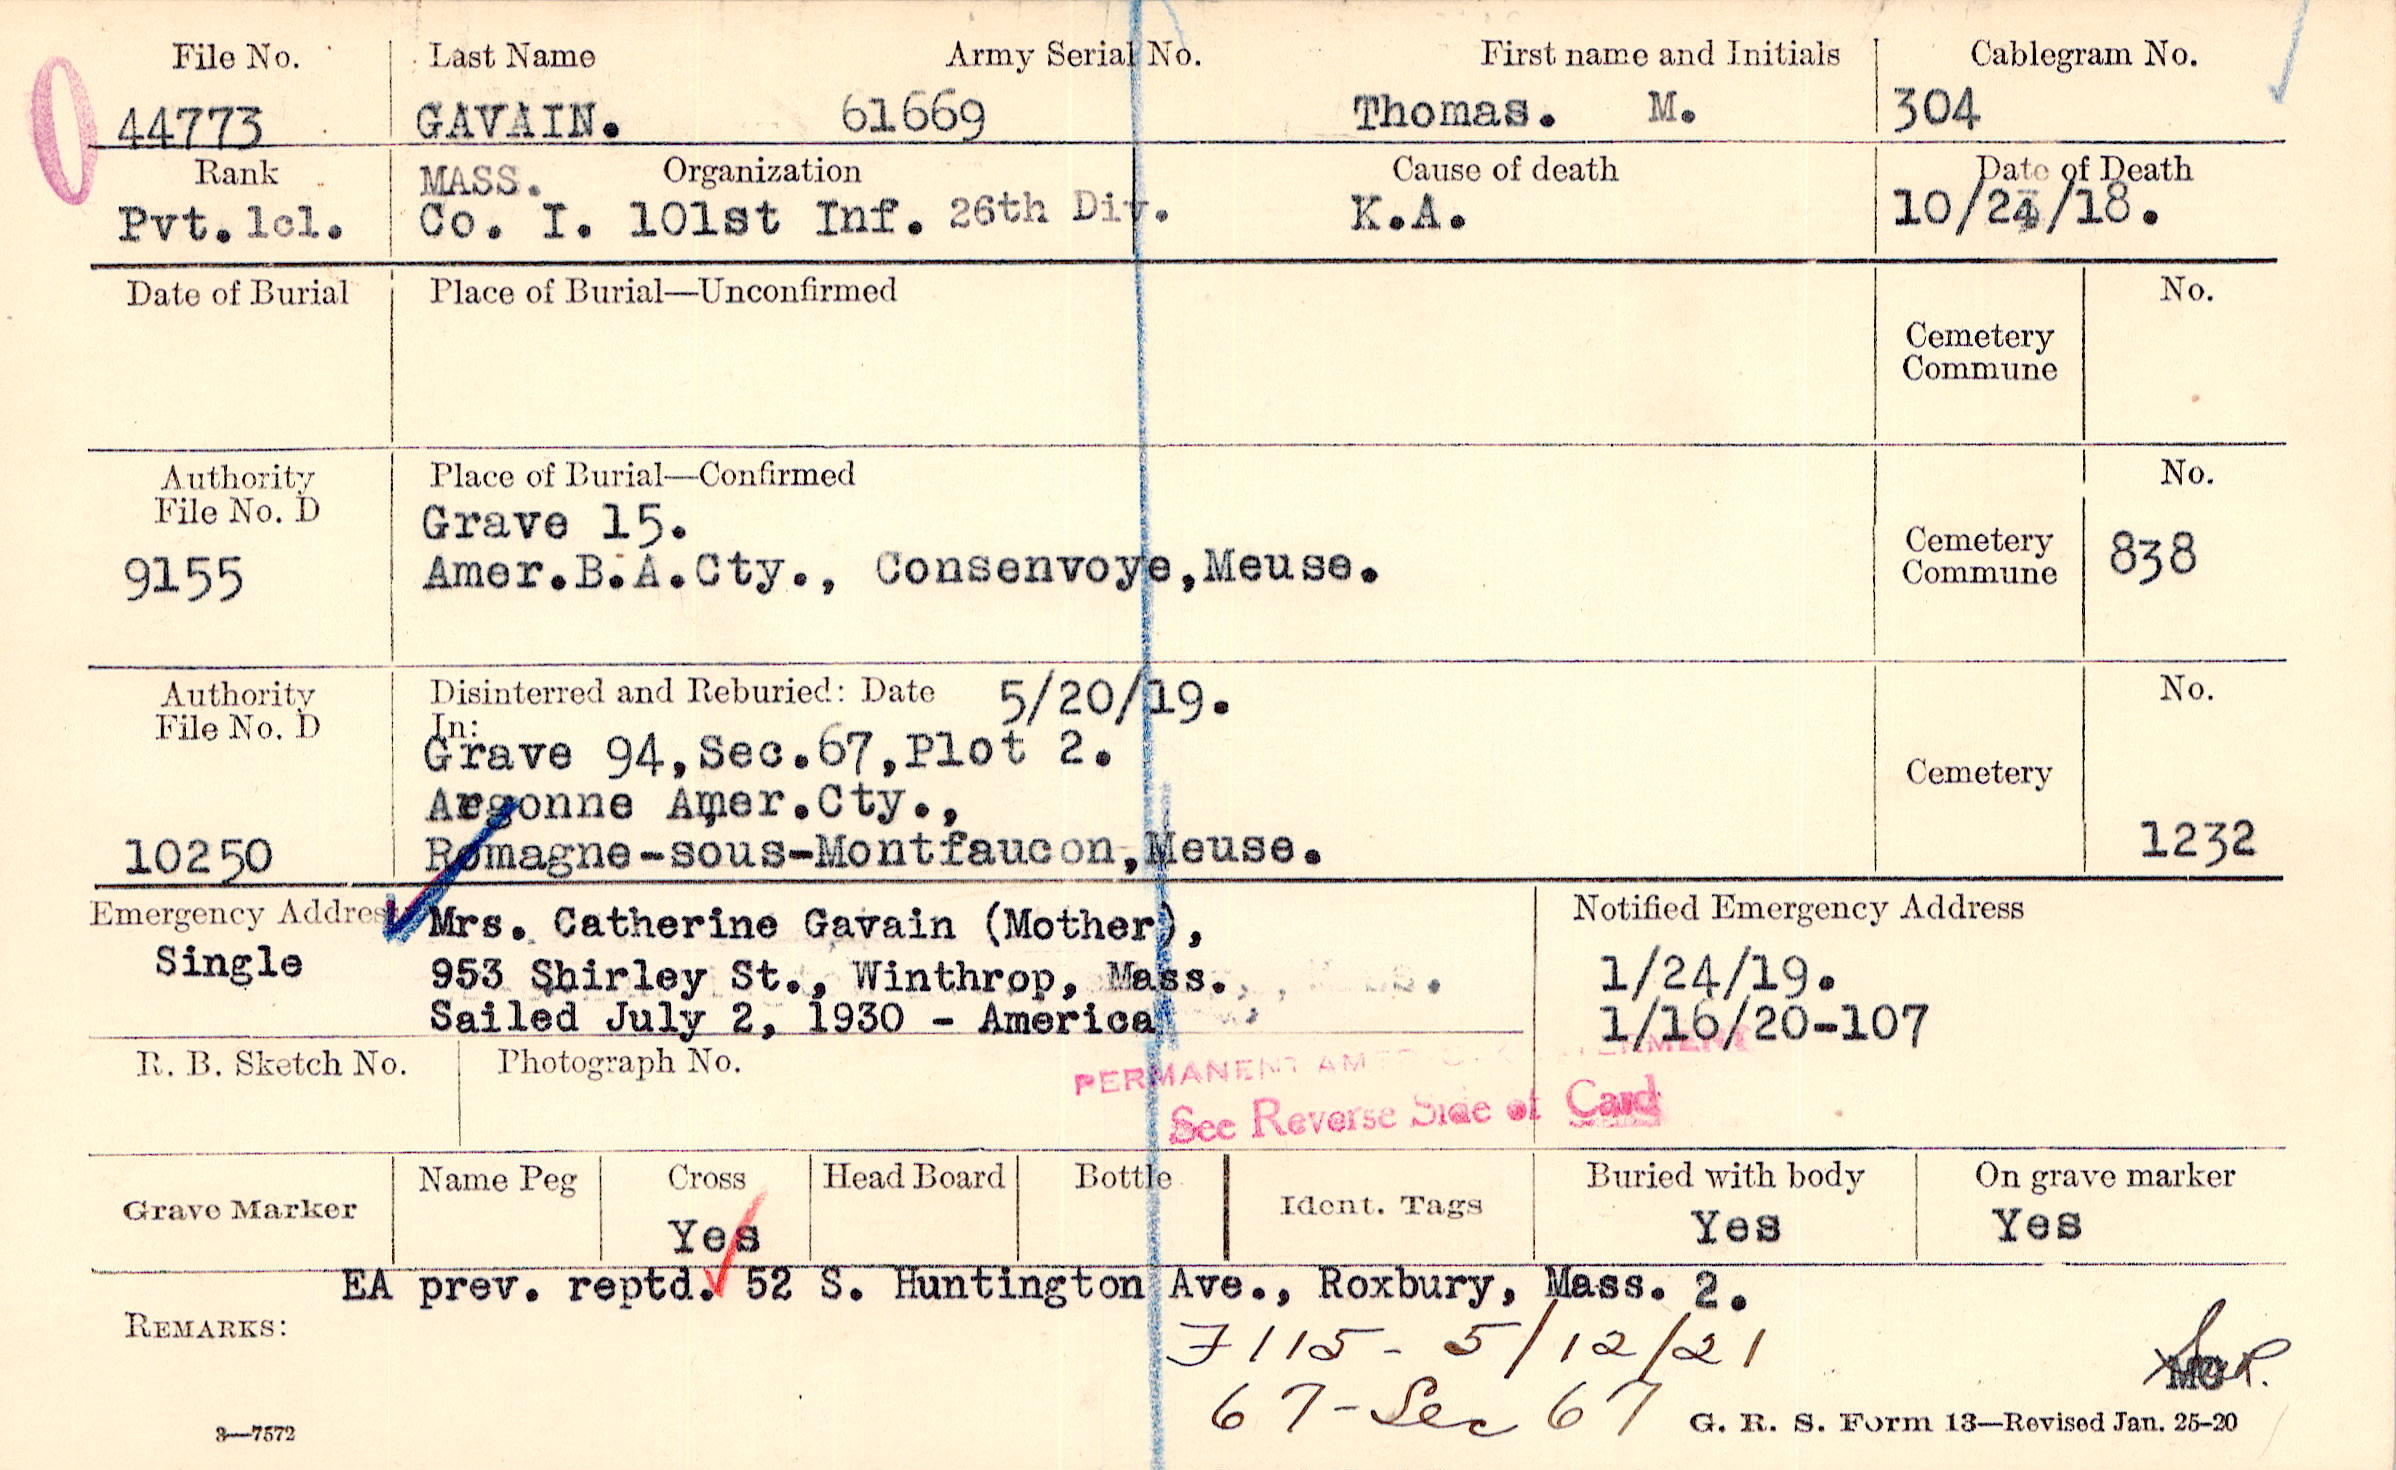 File No. Last Name Army Serial No. First name and Initials Cablegram No.
44773 GAVAIN. 61669 Thomas. M. 304
Rank MASS. Organization Cause of death Date of Death
Pvt.1cl. Co. I. 101st Inf. 26th Div. K.A. 10/24/18.
Date of Burial Place of Burial—Unconfirmed No.
Cemetery
Commune
Authority Place of Burial—Confirmed No.
File No. D Grave 15. Cemetery
9155 Amer.B.A.Cty., Consenvoye,Meuse. Commune 838
Authority Disinterred and Reburied: Date 5/20/19. No.
File No. D In:
Grave 94,Sec.67,Plot 2.
Argonne Amer.Cty., Cemetery
10250 Romagne-sous-Montfaucon,Meuse. 1232
Emergency Address Mrs. Catherine Gavain (Mother), Notified Emergency Address
Single 953 Shirley St., Winthrop, Mass. 1/24/19.
Sailed July 2, 1930 - America 1/16/20-107
R. B. Sketch No. Photograph No.
PERMANENT
See Reverse Side of Card
Grave Marker Name Peg Cross Head Board Bottle Ident. Tags Buried with body On grave marker
Yes Yes Yes
EA prev. reptd. 52 S. Huntington Ave., Roxbury, Mass. 2.
REMARKS:
F115 - 5/12/21
67-Sec 67
3—7572 G. R. S. Form 13—Revised Jan. 25-20